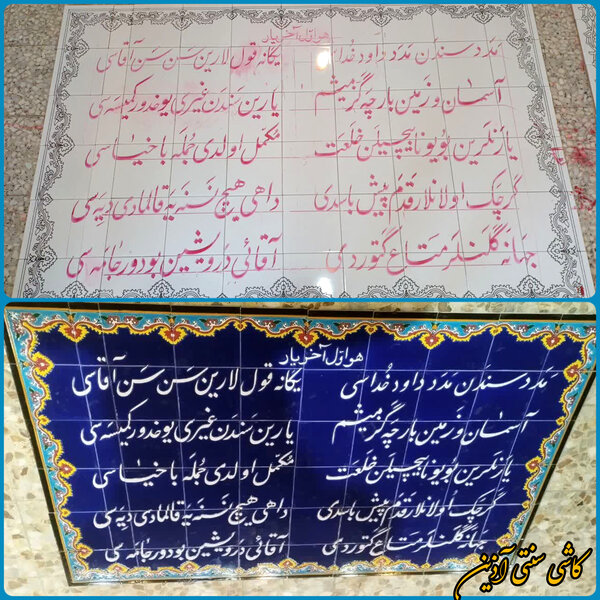 هو اول آخر یار
مدد سندن مدد داود خداسی یگانه قول لارین سن سن آقاسی
آسمان و زمین بارچه گزمیشم یارین سندن غیری یوخدور کیمسه سی
یازنکرین بویونا بیچیلن خلعت مکمل اولدی جمله باخیاسی
گرچک اولانلار قدم پیش باسدی داهی هیچ نسنیه قالمادی دپه سی
جهانه گلنلر متاع گتوردی آقائی درویشین بودور جامه سی
هو اول آخر یار
مدد سندن مدد داود خداسی یگانه قول لارین سن سن آقاسی
آسمان و زمین بارچه گزمیشم یارین سندن غیری یوخدور کیمسه سی
یازنکرین بویونا بیچیلن خلعت مکمل اولدی جمله باخیاسی
گرچک اولانلار قدم پیش باسدی داهی هیچ نسنیه قالمادی دپه سی
جهانه گلنلر متاع گتوردی آقائی درویشین بودور جامه سی
کاشی سنتی آذین